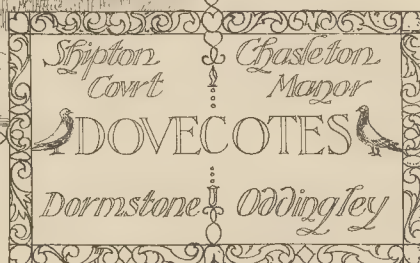 Shipton
Court
Chasleton
Manor
DOVECOTES
Dormstone
Oddingley